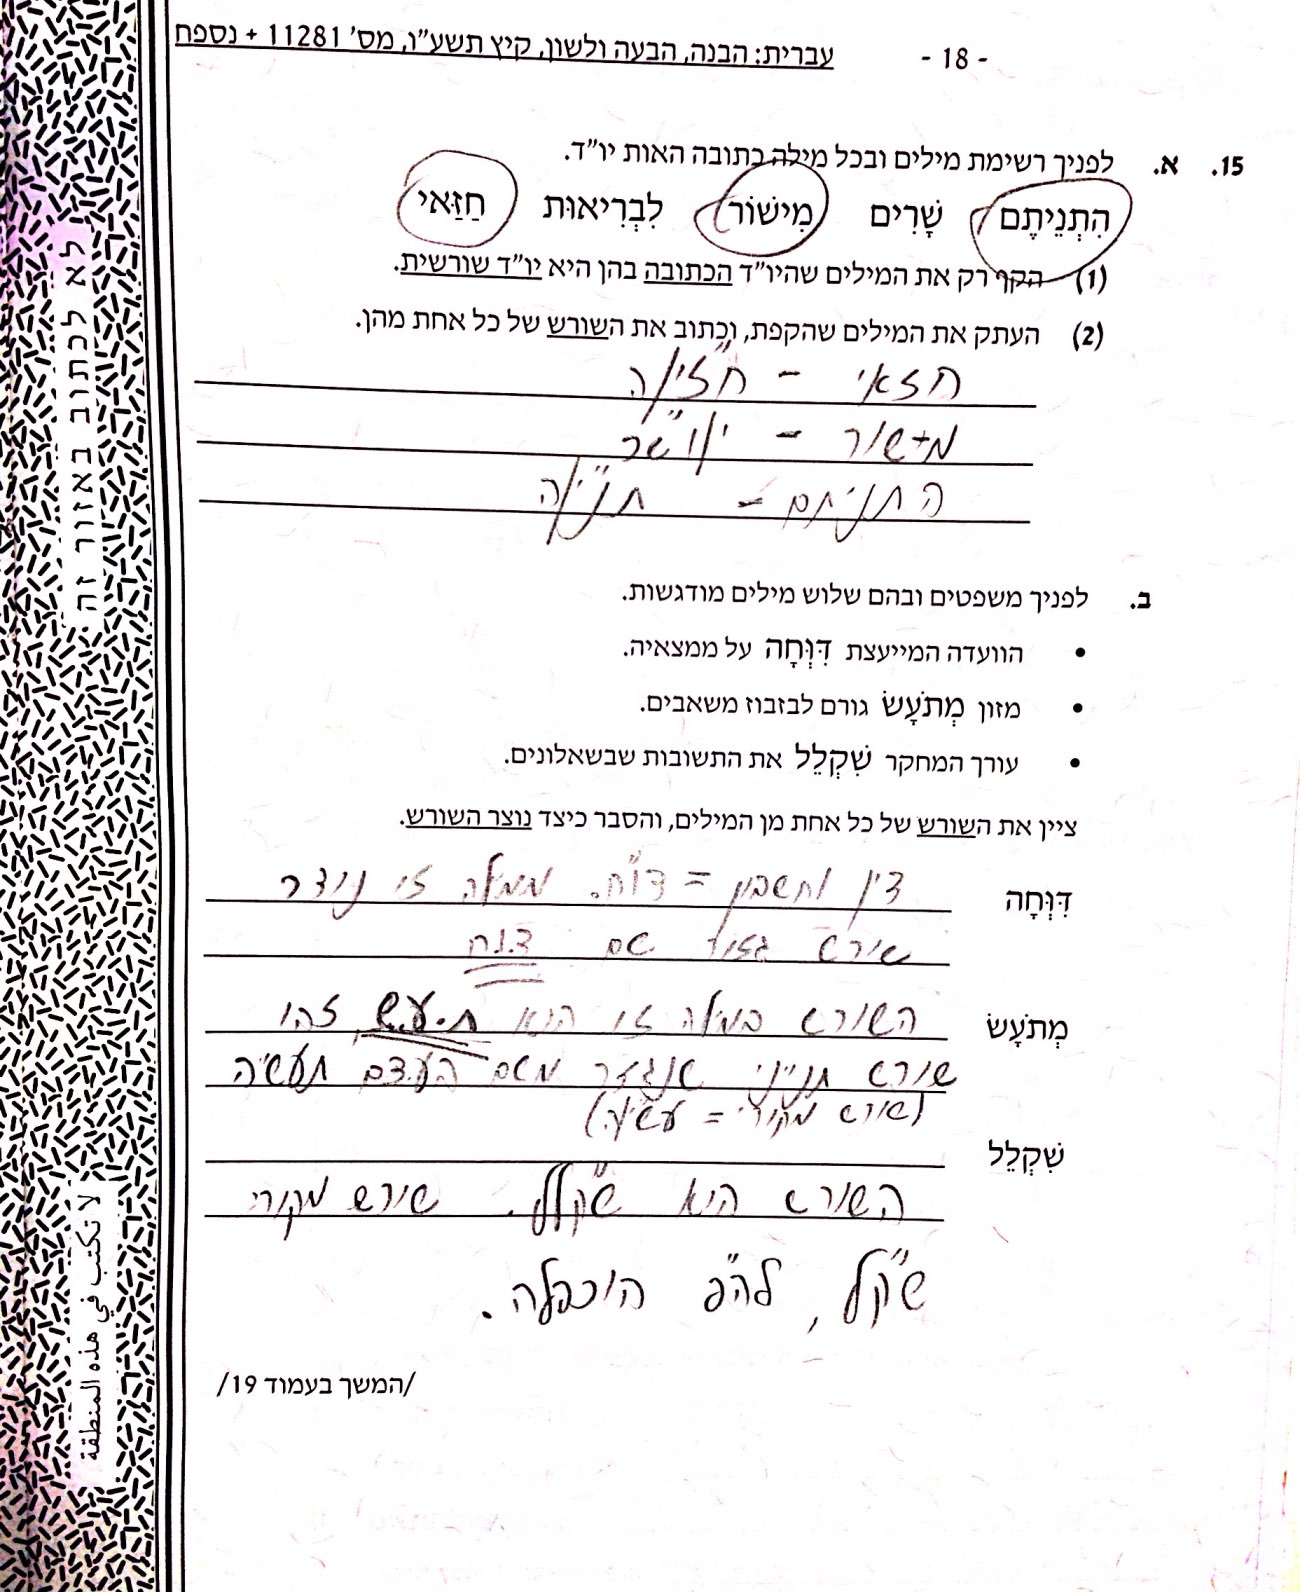 - 18 - עברית: הבנה, הבעה ולשון, קיץ תשע"ו, מס' 11281 + נספח
15. א. לפניך רשימת מילים ובכל מילה כתובה האות יו"ד.
הִתְנֵיתֶם שָׁרִים מִישׁוֹר לִבְרִיאוּת חַזַּאי
(1) הקף רק את המילים שהיו"ד הכתובה בהן היא יו"ד שורשית.
(2) העתק את המילים שהקפת, וכתוב את השורש של כל אחת מהן.
חזאי - חז"י/ה
מישור - י/וש"ר
התניתם - תנ"י/ה
ב. לפניך משפטים ובהם שלוש מילים מודגשות.
• הוועדה המייעצת דִּוְּחָה על ממצאיה.
• מזון מְתֹעָשׂ גורם לבזבוז משאבים.
• עורך המחקר שִׁקְלֵל את התשובות שבשאלונים.
ציין את השורש של כל אחת מן המילים, והסבר כיצד נוצר השורש.
דִּוְּחָה דין וחשבון = דו"ח. ממילה זו נוצר
שורש גזור שם ד.ו.ח
מְתֹעָשׂ השורש במילה זו הוא ת.ע.ש, זהו
שורש תנייני שנגזר משם העצם תעשיה
(שורש מקורי = עשי/ה)
שִׁקְלֵל
השורש היא שקל"ל. שורש מקורי
שק"ל, לה"פ הוכפלה.
/המשך בעמוד 19/
לא לכתוב באזור זה
لا تكتب في هذه المنطقة